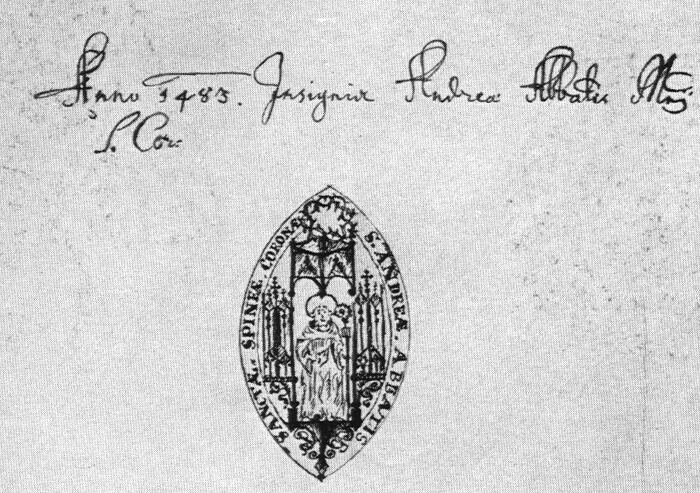 Anno 1483. Insignia Andreæ Abbatis Mrÿ
S. Cor:
S. ANDREÆ. ABBATIS SANCTÆ.. SPINEÆ. CORONÆ